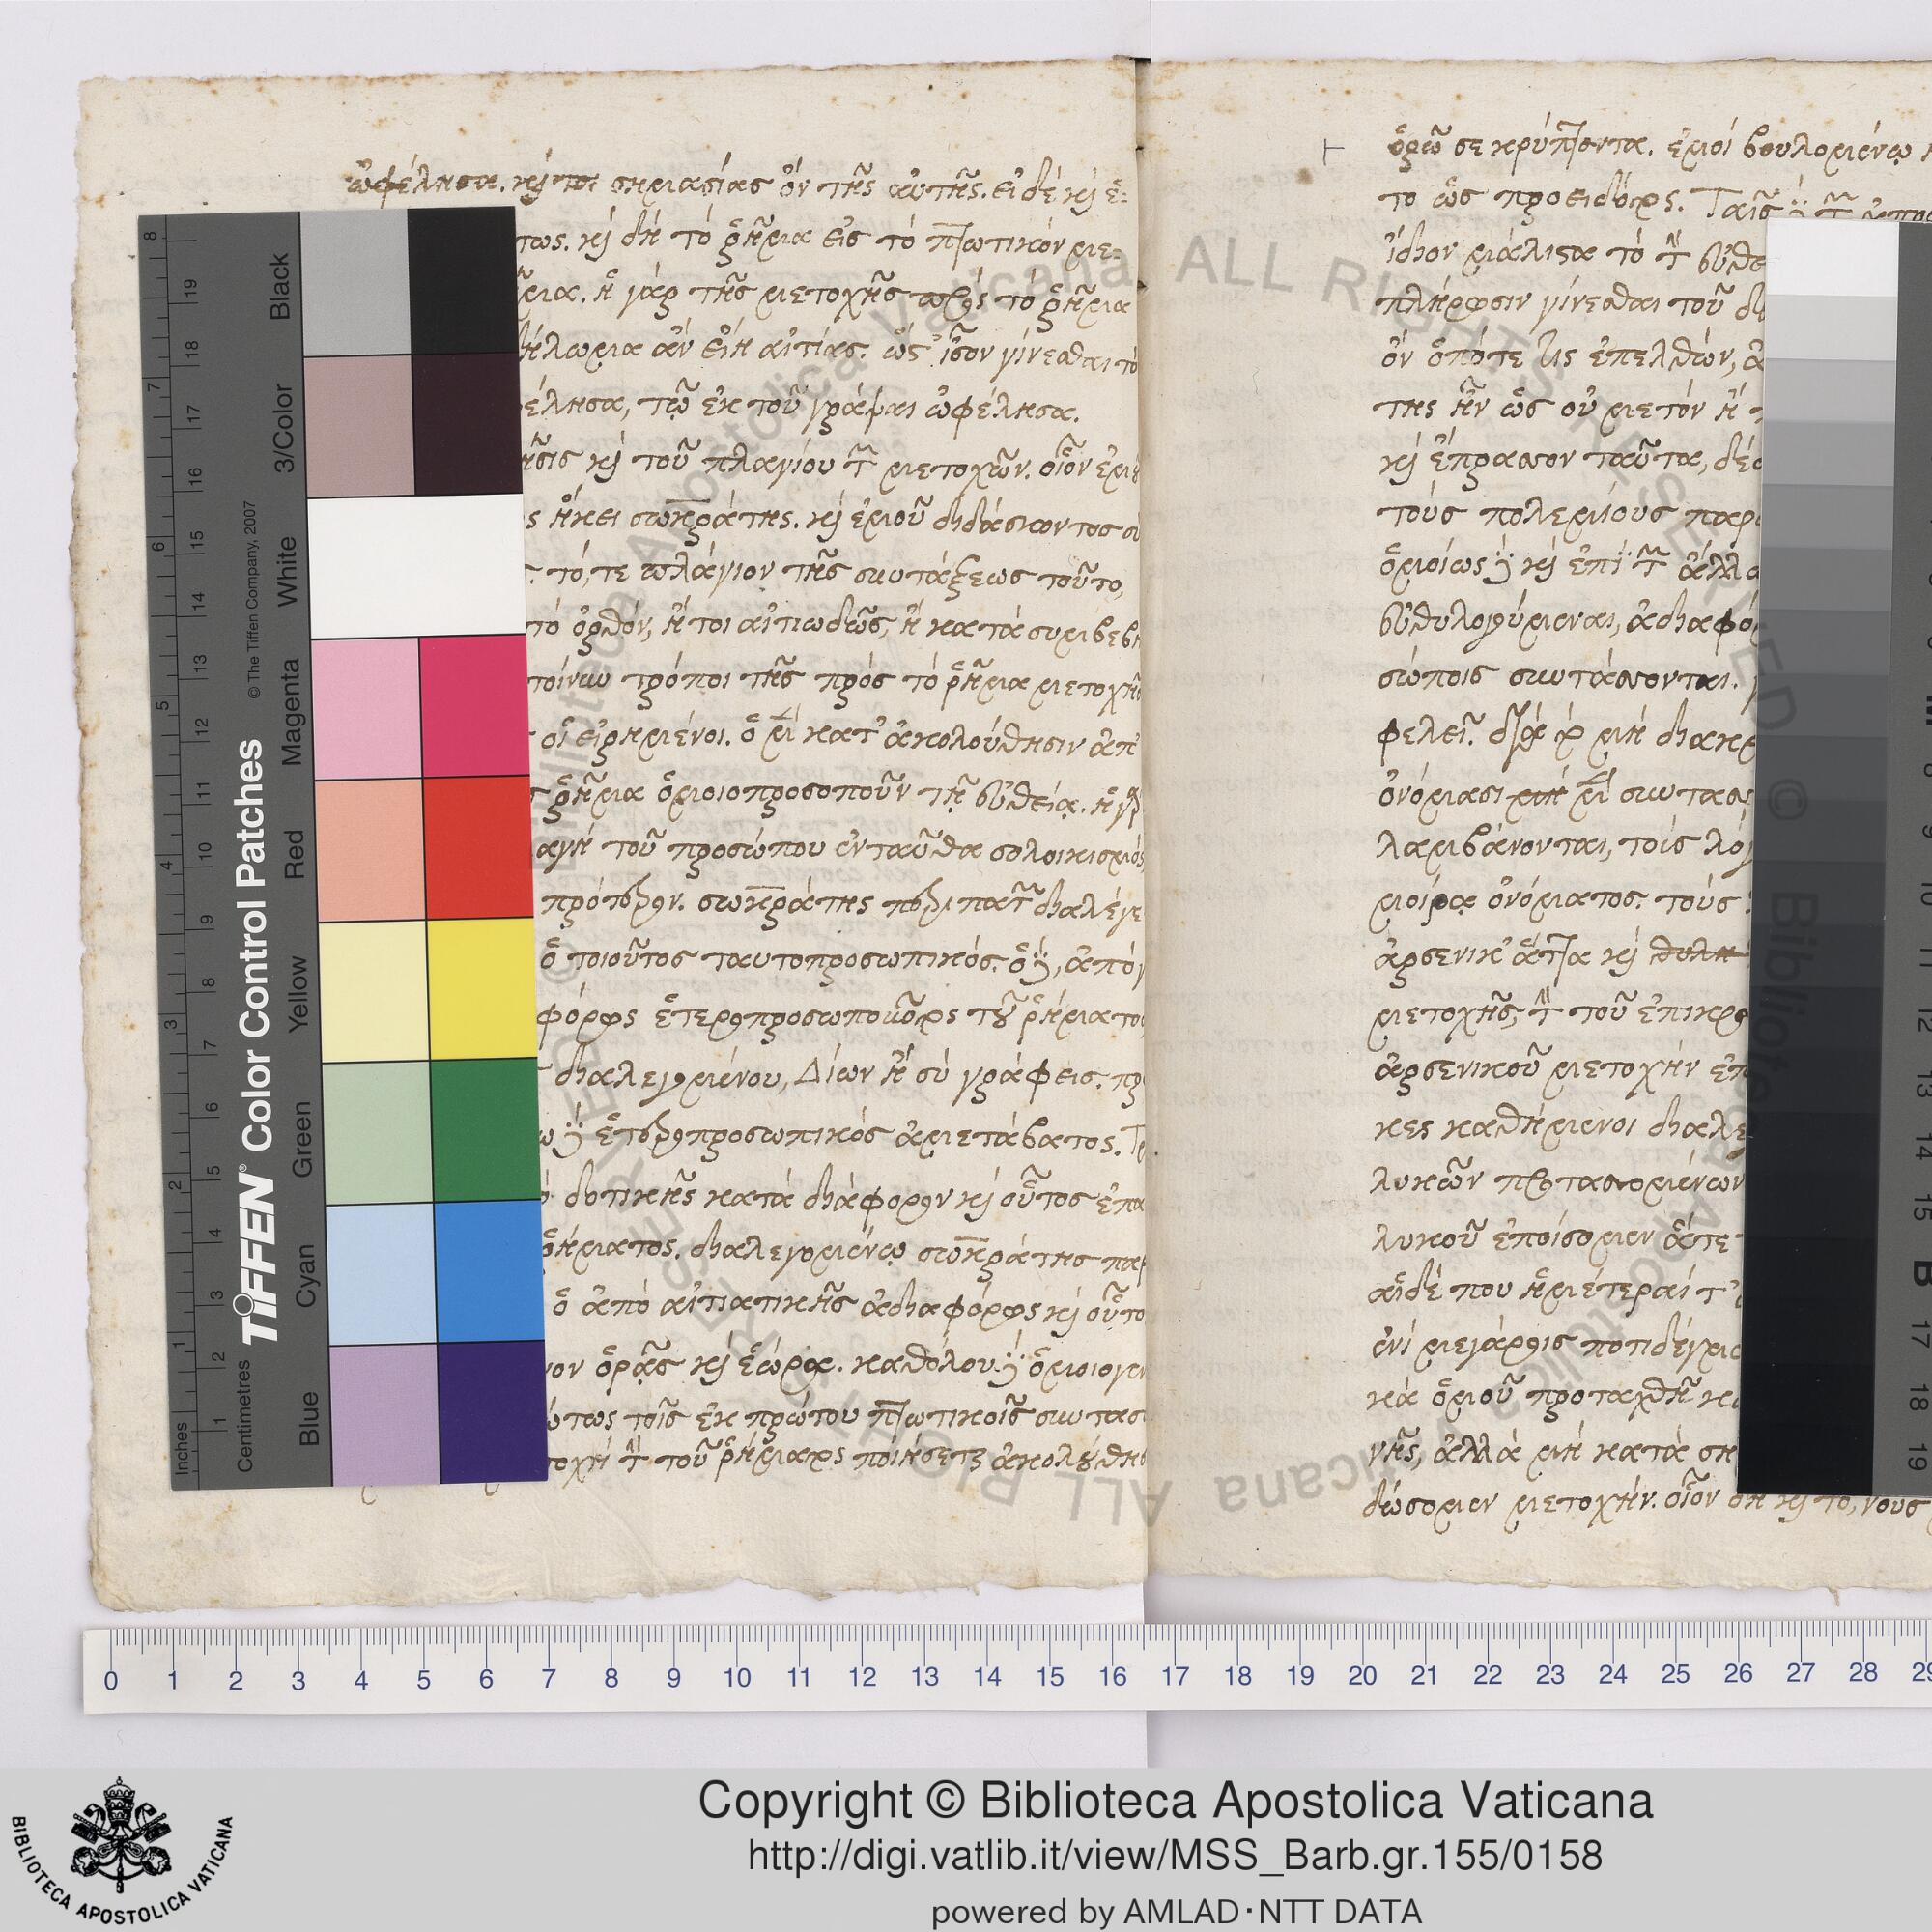 ὠφέλησα. καί τοι σημασίας ὂν τῆς αὐτῆς. εἰ δὲ καὶ ἑ-
τως. καὶ δὴ τὸ ῥῆμα εἰς τὸ πτωτικὸν με-
ῆμα. ἡ γὰρ τῆς μετοχῆς πρὸς τὸ ῥῆμα
ήλωμα ἂν εἴη αἰτίας. ὡς ἴσον γίνεσθαι τὸ
έλησα, τῷ ἐκ τοῦ γράψαι ὠφέλησα.
ῆσις καὶ τοῦ πλαγίου τῶν μετοχῶν. οἷον ἐμοῦ
ς ἥκει σωκράτης. καὶ ἐμοῦ διδάσκοντος
τό, τε πλάγιον τῆς συντάξεως τοῦτο,
τὸ ὀρθόν, ἤτοι αἰτιωδῶς, ἢ κατὰ συμβεβη
τοίνυν τρόποι τῆς πρὸς τὸ ῥῆμα μετοχῆς
οἱ εἰρημένοι. ὁ μὲν κατ' ἀκολούθησιν ἀπ'
ῥῆμα ὁμοιοπροσοποῦν τῇ εὐθείᾳ. ἡ γὰρ
αγὴ τοῦ προσώπου ἐνταῦθα σολοικισμός
πρότερον. σωκράτης περιπατῶν διαλέγε
ὁ τοιοῦτος ταυτοπροσωπικός. ὁ δὲ, ἀπὸ γ
φόρως ἑτεροπροσωποῦντος τοῦ ῥήματος
διαλεγομένου, Δίων ἢ σὺ γράφεις.
δὲ ἑτεροπροσωπικὸς ἀμετάβατος.
δοτικῆς κατὰ διάφορον καὶ οὗτος
ῥήματος. διαλεγομένῳ σωκράτης
ὁ ἀπὸ αἰτιατικῆς ἀδιαφόρως καὶ οὗτο
νον ὁρᾷς καὶ ἑώρα. καθόλου δὲ ὁμοιογεν
ώτως τοῖς ἐκ πρώτου πτωτικοῖς συντασ
τοχὴ τὴν τοῦ ῥήματος ποιήσεται ἀκολούθησ
ὁρῶ σε κρύπτοντα. ἐμοὶ βουλομένῳ
το ὡς προειδότος. Ταῖς δὲ τῶν
ἴδιον μάλιστα τὸ τὴν εὐθε
πλήρωσιν γίνεσθαι τοῦ
ὃν ὁπότε τις ἐπελθών,
της ἦν ὡς οὐ μετὸν ἢ
καὶ ἔπρασσον ταῦτα,
τοὺς πολεμίους παρ
ὁμοίως δὲ καὶ ἐπὶ τῶν ἄλλ
εὐθυλογούμεναι, ἀδιαφό
σώποις συντάσσονται.
φελεῖ. διὰ τὸ μὴ διακρ
ὀνόμασι μὲν συντασ
λαμβάνονται, τοῖς λόγ
μοίρᾳ ὀνόματος. τοὺς
ἀρσενικ' ἄττα καὶ θηλυ
μετοχῆς, τὴν τοῦ ἐπικρα
ἀρσενικοῦ μετοχὴν ἐπ
κες καθήμενοι διαλε
λυκῶν προτασσομένων
λυκοῦ ἐποίσομεν ἅτε
αἵδέ που ἡμέτεραί τ'
ἐνὶ μεγάροις ποτιδέγμε
κὰ ὁμοῦ προταχθῇ κα
νῆς, ἀλλὰ μὴ κατὰ ση
δώσομεν μετοχήν. οἷον
8 7 6 5 4 3 2 1
19 18 17 16 15 14 13 12 11 10 9 8 7 6 5 4 3 2 1
Inches
Centimetres
TIFFEN® Color Control Patches
© The Tiffen Company, 2007
Black
3/Color
White
Magenta
Red
Yellow
Green
Cyan
Blue
M
B
0 1 2 3 4 5 6 7 8 9 10 11 12 13 14 15 16 17 18 19 20 21 22 23 24 25 26 27 28 29
BIBLIOTECA APOSTOLICA VATICANA
Copyright © Biblioteca Apostolica Vaticana
http://digi.vatlib.it/view/MSS_Barb.gr.155/0158
powered by AMLAD·NTT DATA